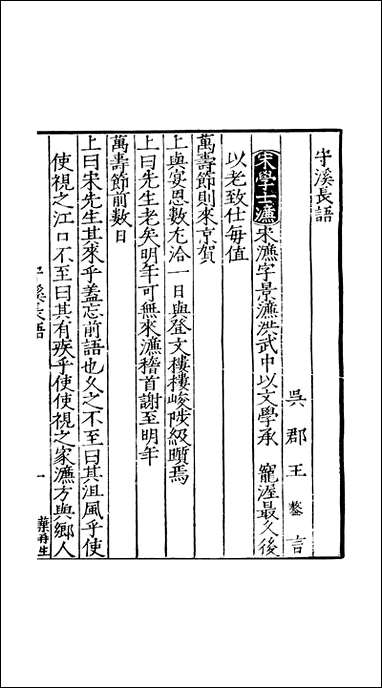 守溪長語
吳郡王鏊言
宋學士濂宋濂字景濂洪武中以文學承 寵渥最久後
以老致仕每值
萬壽節則來京賀
上與宴恩數尤洽一日與登文樓樓峻陟級躓焉
上曰先生老矣明年可無來濂稽首謝至明年
萬壽節前數日
上曰宋先生其來乎葢忘前語也久之不至曰其沮風乎使
使視之江口不至曰其有疾乎使使視之家濂方與鄉人
守溪長語
一